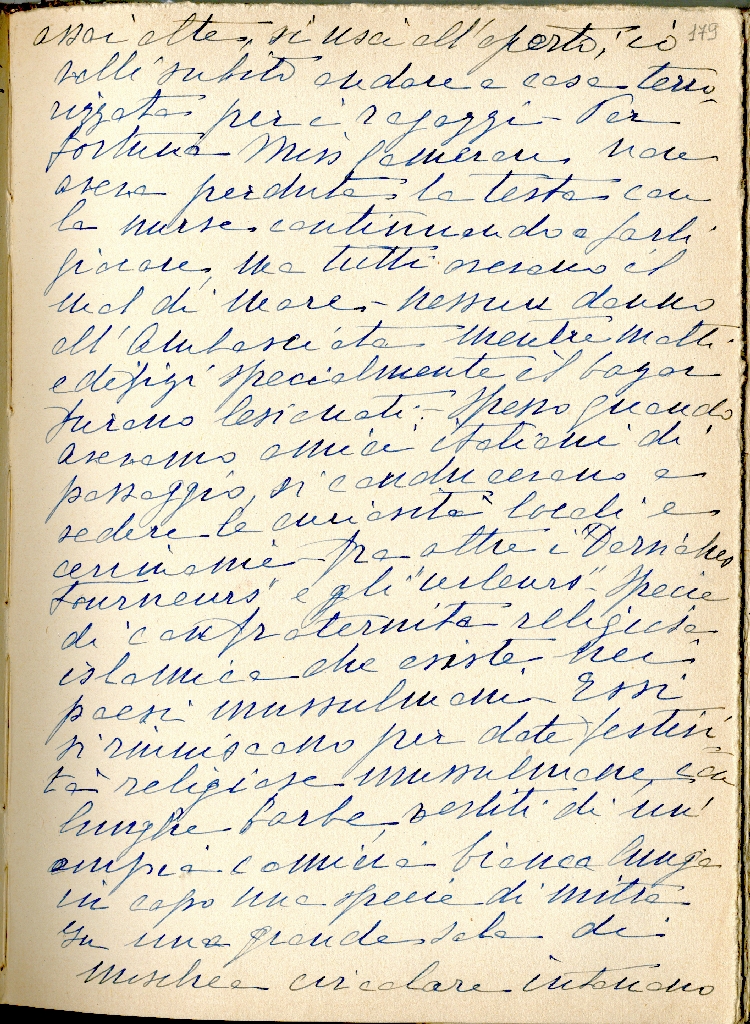 179
assai alte, si uscì all'aperto, io
volli subito andare a casa terro-
rizzata per i ragazzi - Per
fortuna Miss Cameran non
aveva perduta la testa con
la nurse continuando a farli
giocare, ma tutti avevano il
mal di mare - nessun danno
all'Ambasciata mentre molti
edifizi specialmente il bazar
furono lesionati - Spesso quando
avevamo amici italiani di
passaggio, si conducevano a
vedere le curiosità locali e
cerimonie fra altre i "Derviches
tourneurs" e gli "urleurs" - specie
di confraternita religiosa
islamica che esiste nei
paesi mussulmani - Essi
si riuniscono per date festivi-
tà religiose mussulmane, con
lunghe barbe, vestiti di un'
ampia camicia bianca lunga
in capo una specie di mitra
In una grande sala di
moschea circolare intonano